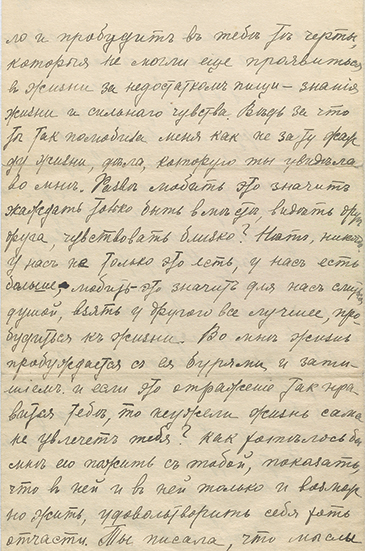 ло и пробудитъ въ тебѣ тѣ черты,
которыя не могли еще проявиться
въ жизни за недостаткомъ пищи – знанія
жизни и сильнаго чувства. Вѣдь за что
ты такъ полюбила меня какъ не за ту жаж
ду жизни, дѣла, которую ты увидѣла
во мнѣ. Развѣ любить это значитъ
жаждать только быть вмѣстѣ, видѣть другъ
друга, чувствовать близко? Нѣтъ,
у насъ не только это есть, у насъ есть
больше, любить это значитъ для насъ слиться
душой, взять у другого все лучшее, про-
будиться къ жизни. Во мнѣ жизнь
пробуждается съ ея бурями и зати-
шіемъ и если это отраженіе такъ нра-
вится тебѣ, то неужели жизнь сама
не увлечетъ тебя? Какъ хотѣлось бы
мнѣ ею пожить съ тобой, показать,
что въ ней и въ ней только и возмож
но жить, удовольтворить себя хоть
отчасти. Ты писала, что мысль